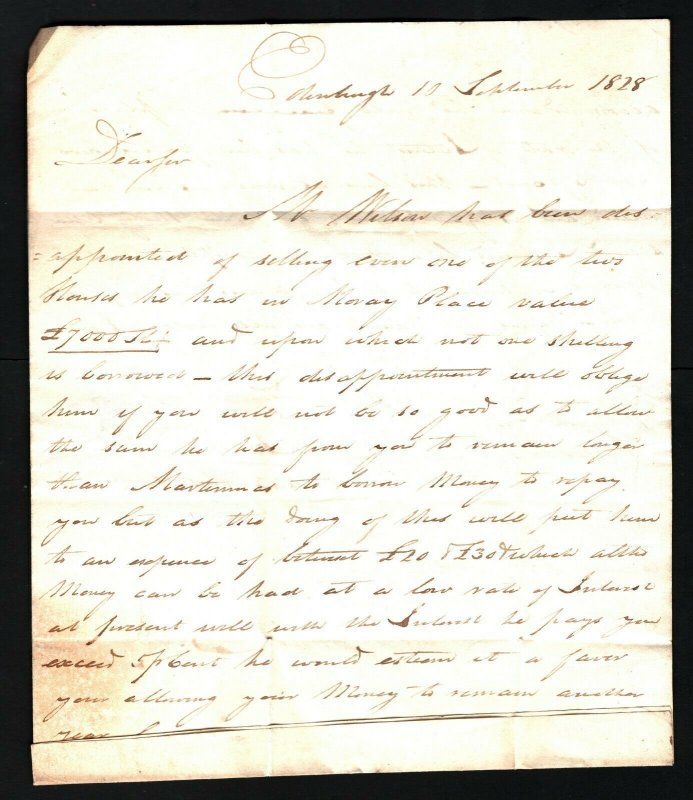 Edinburgh 10 September 1828
Dear Sir
Mr Wilson has been dis-
=appointed of selling even one of the two
Houses he has in Moray Place value
£7000 and upon which not one shilling
is borrowed – this disappointment will oblige
him if you will not be so good as to allow
the sum he has from you to remain longer
than Martinmas to borrow Money to repay
you but as the doing of this will put him
to an expence of between £20 & £30 which altho
Money can be had at a low rate of Interest
at present will with the Interest he pays you
exceed 5 pCent he would esteem it a favor
your allowing your Money to remain another
year